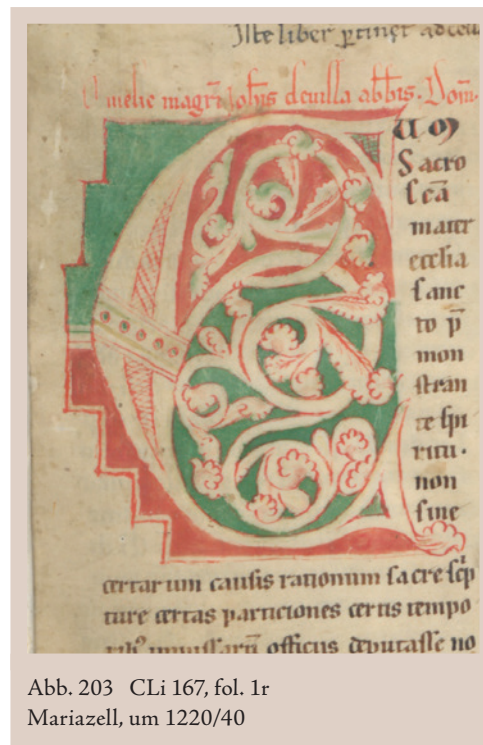 Iste liber ꝑtinet ad cell
Omelie magr̄i Joh̄is de villa abb̄is. Dom̄
Cum
Sacro
sc̄a
mater
ecclia
sanc
to p̄
mon
stran
te spi
ritu.
non
sine
certarum causis rationum sacre sc̄p
ture certas particiones certis tempo
missarū officiis deputasse no
Abb. 203 CLi 167, fol. 1r
Mariazell, um 1220/40